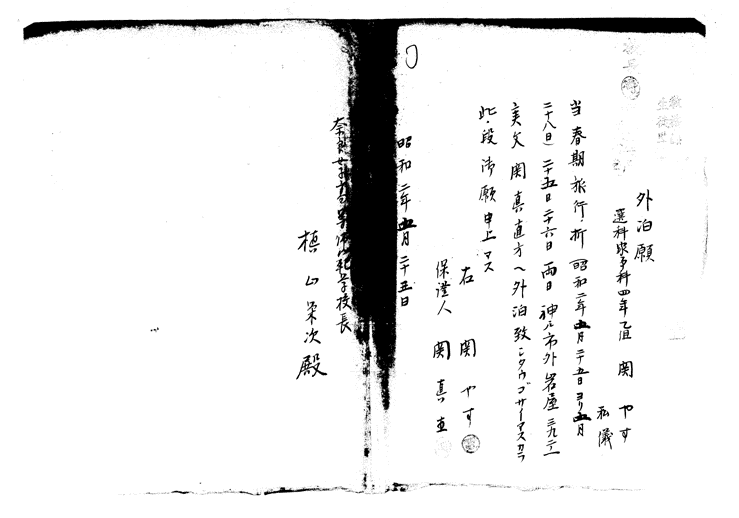 外泊願
選科家事科四年乙組 関 やす
私儀
当春期旅行ノ折昭和二年五月二十五日ヨリ五月
二十八日 二十五日二十六日両日神戸市外岩屋
実父関真直方ヘ外泊致シタウゴザイマスカラ
此段御願申上マス
右 関 やす
保證人 関 真直
昭和二年五月二十五日
奈良女子高等師範学校長
槙山栄次殿